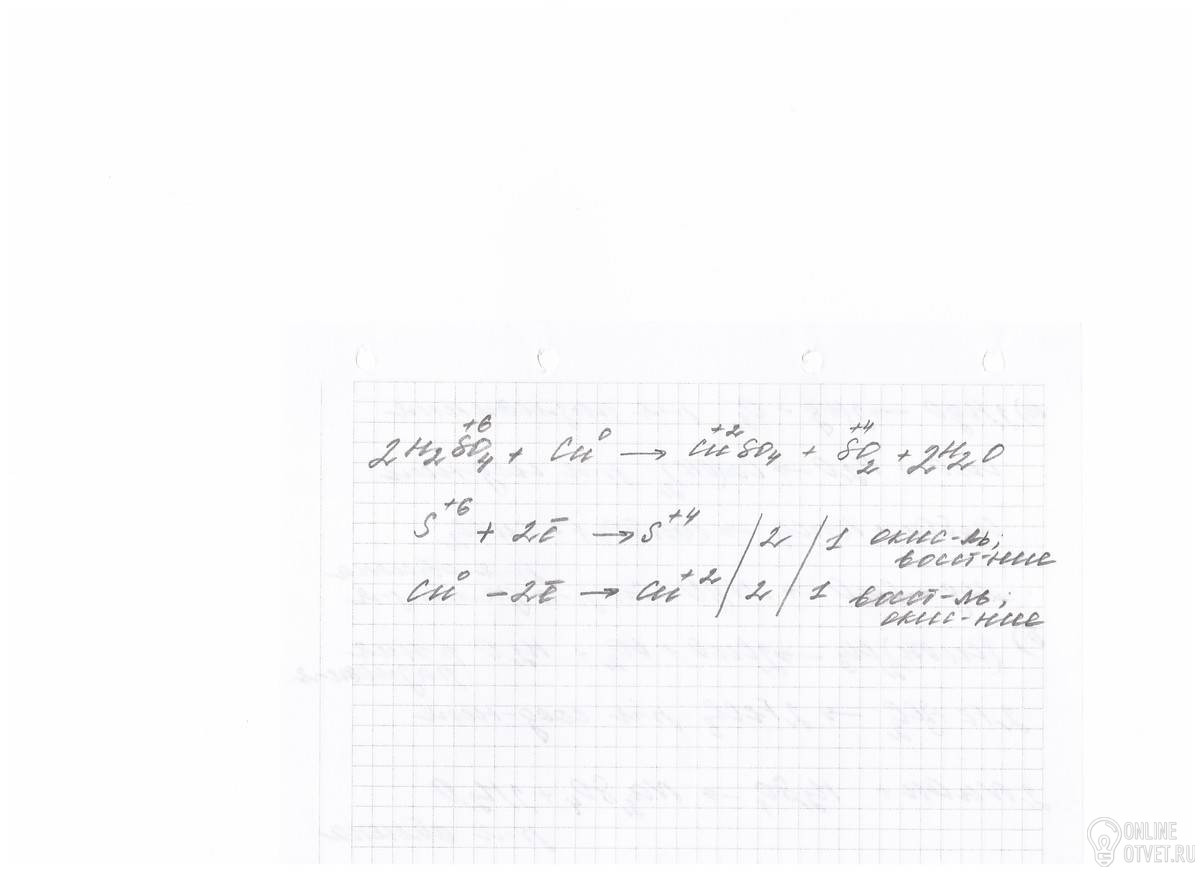 2H₂S⁺⁶O₄ + Cu⁰ → Cu⁺²SO₄ + S⁺⁴O₂ + 2H₂O
S⁺⁶ + 2ē → S⁺⁴ / 2 / 1 окис-ль;
восст-ние
Cu⁰ - 2ē → Cu⁺² / 2 / 1 восст-ль;
окис-ние
ONLINE
OTVET.RU